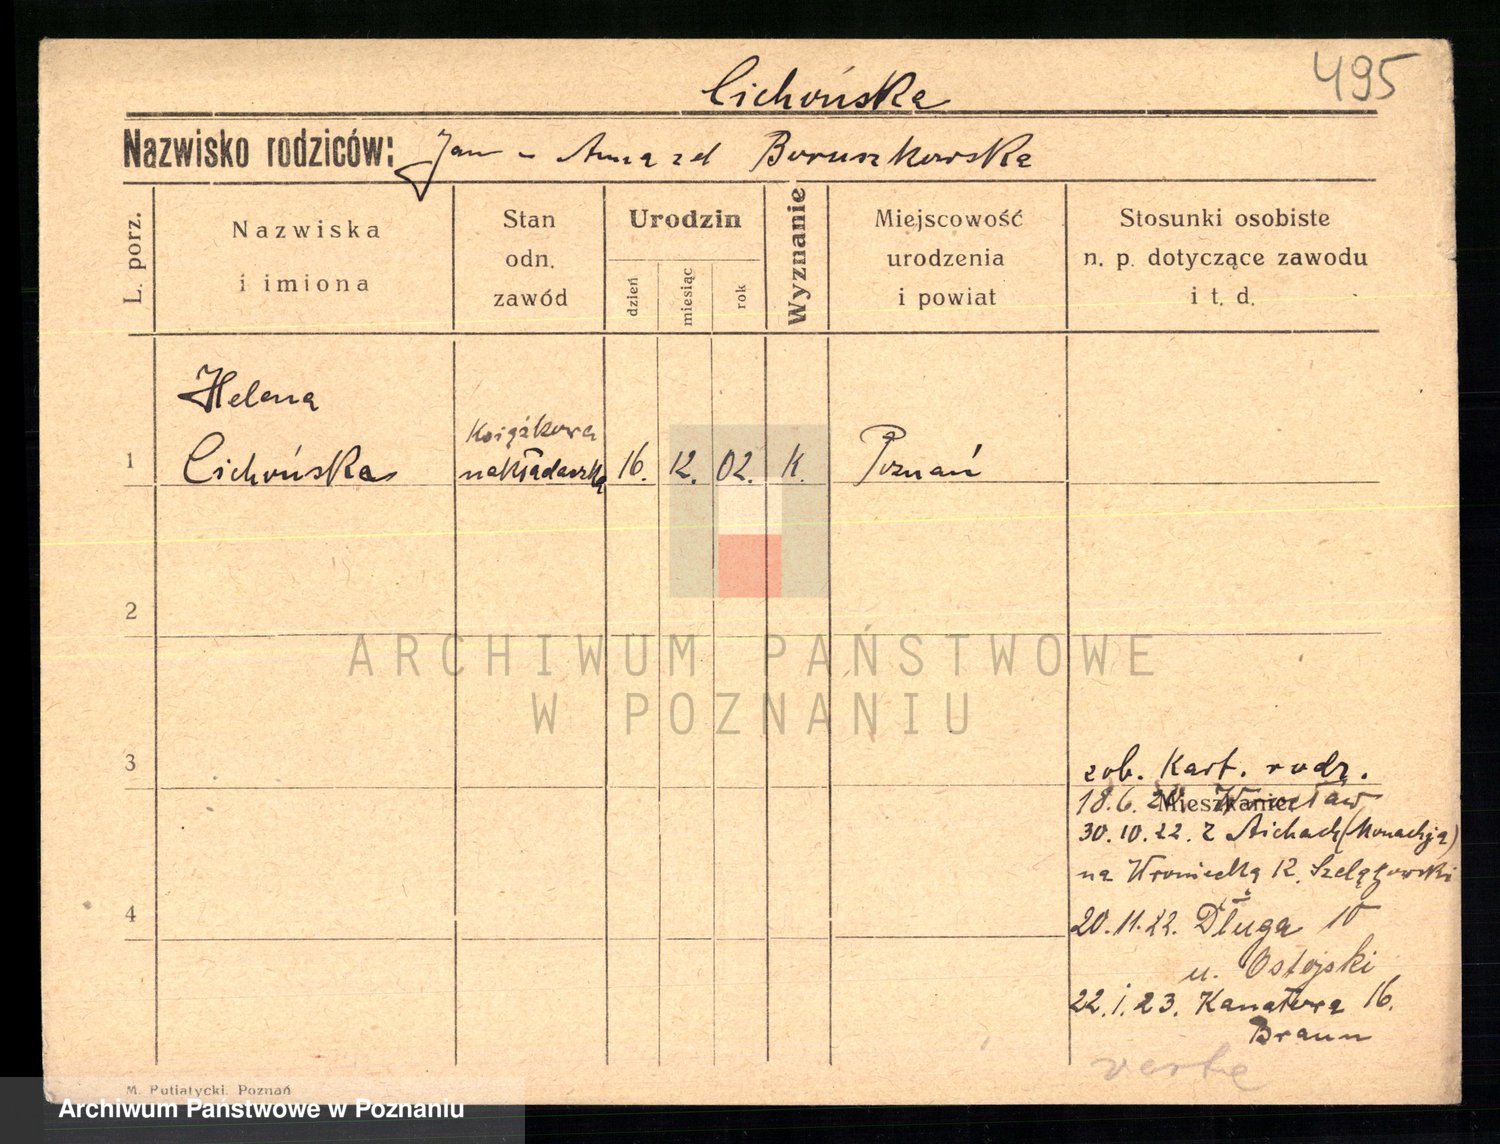 495
Cichońska
Nazwisko rodziców: Jan - Anna zd Boruszkowska
L. porz.
Nazwiska
i imiona
Stan
odn.
zawód
Urodzin
dzień
miesiąc
rok
Wyznanie
Miejscowość
urodzenia
i powiat
Stosunki osobiste
n. p. dotyczące zawodu
i t. d.
Helena
Książkowa
1 Cichońska nakładaczka 16. 12. 02. K. Poznań
2
ARCHIWUM PAŃSTWOWE
W POZNANIU
3
zob. Kart. rodz.
Mieszkanie:
18.6. Wrocław
30.10.22. z Aichach (Monachja)
na Wroniecką 12. Szelągowski
4
20.11.22. Długa 10
u. Ostojski
22.1.23. Kanałowa 16.
Braun
verte
M. Putiatycki, Poznań
Archiwum Państwowe w Poznaniu